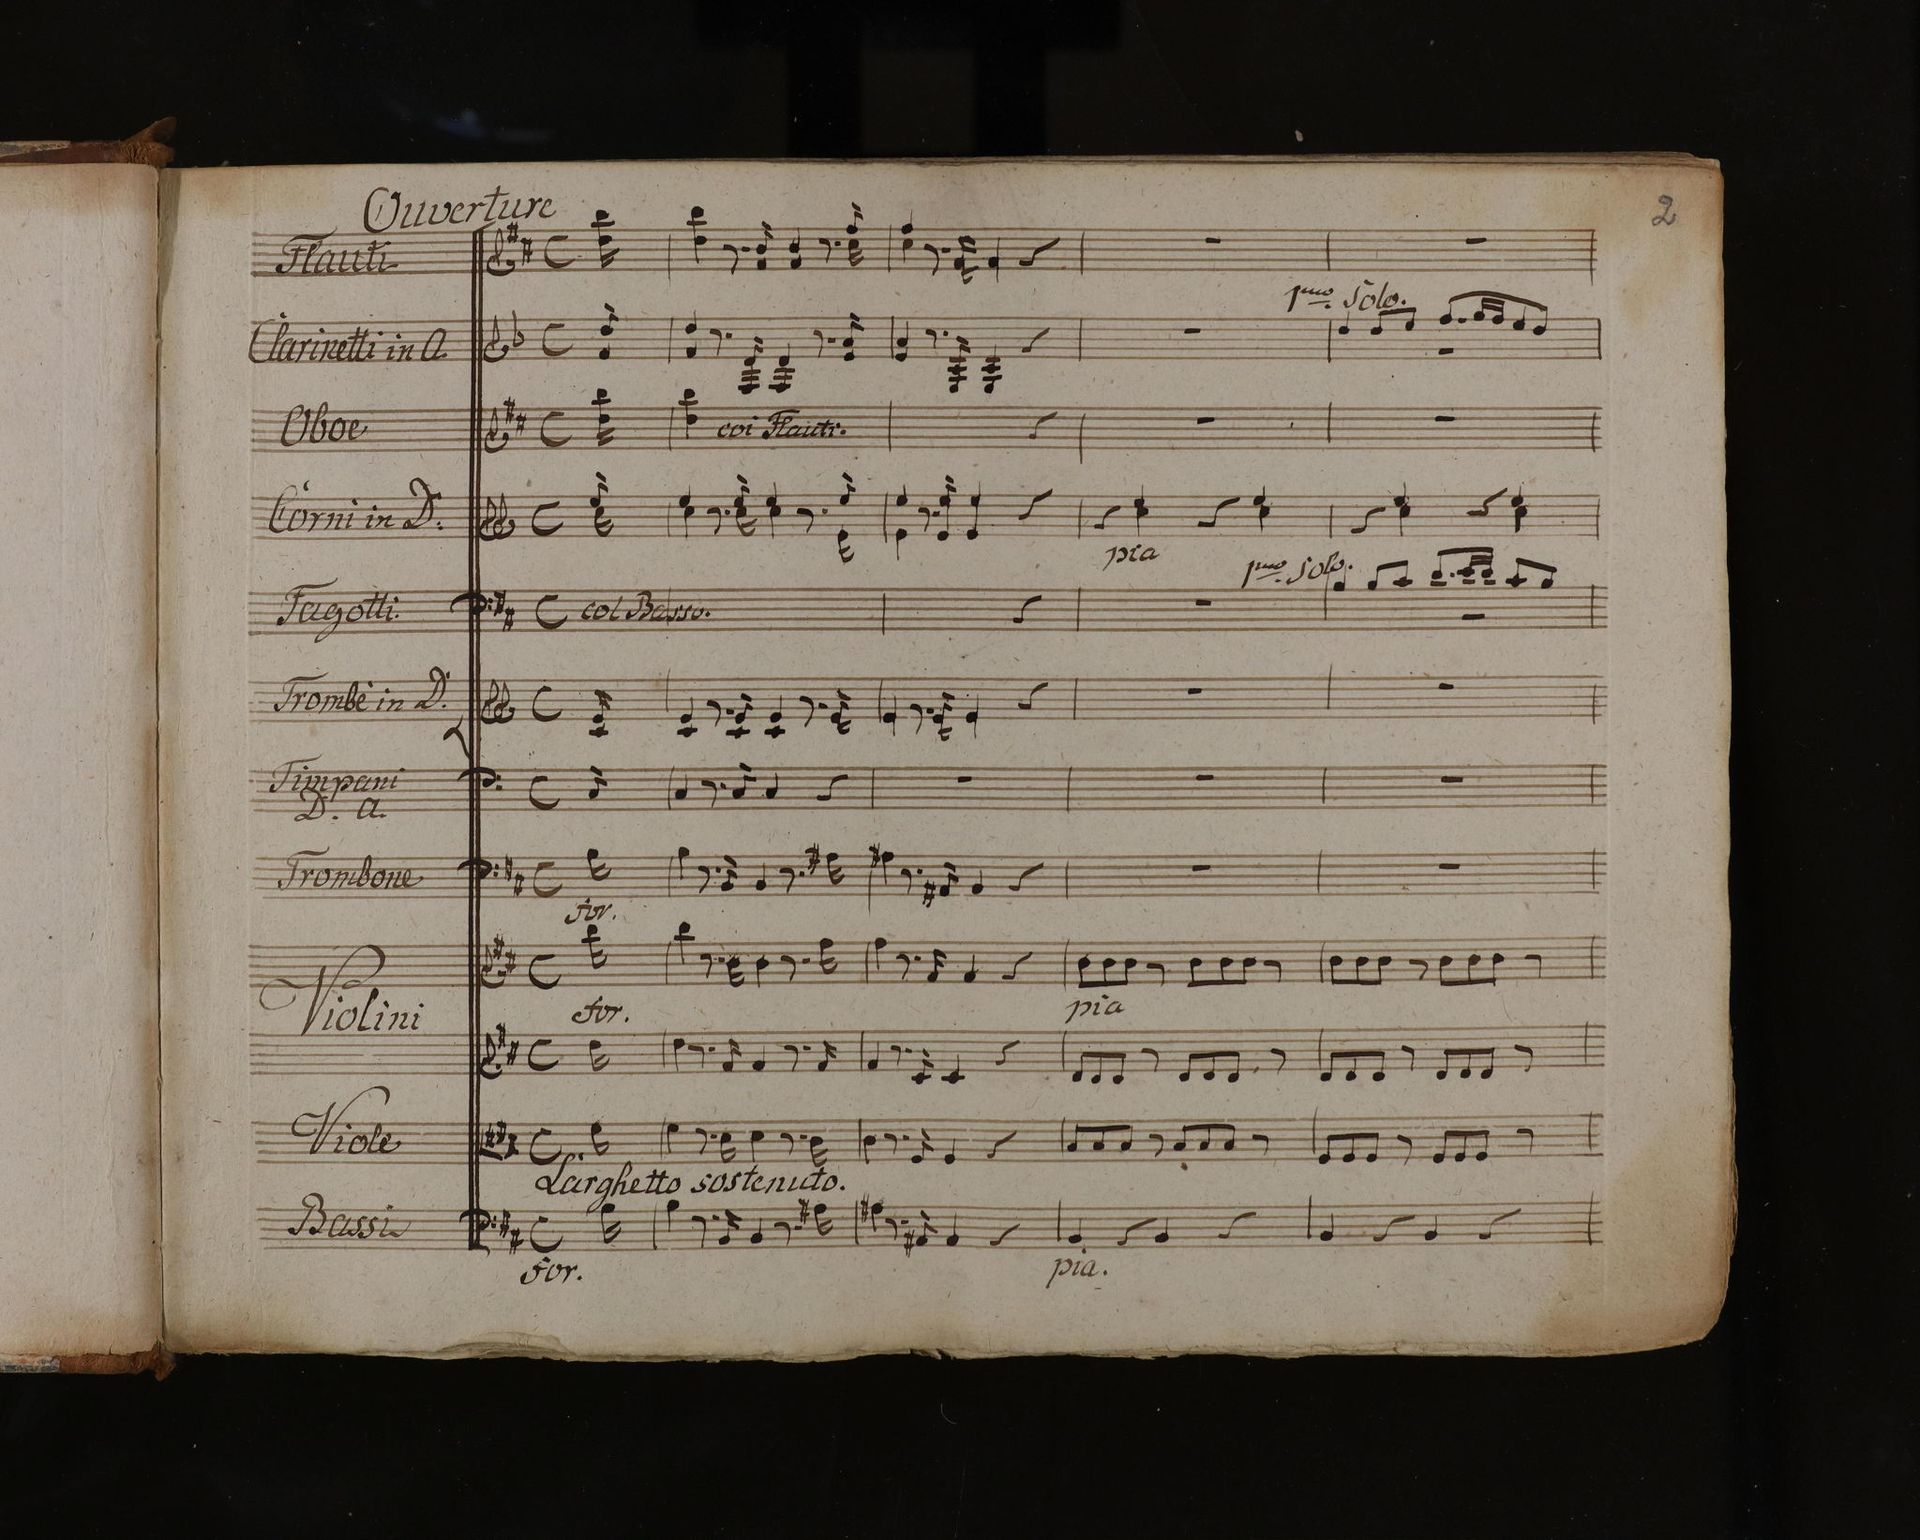 2
Ouverture
Flauti
1mo. Solo.
Clarinetti in A.
Oboe
coi Flauti.
Corni in D.
pia
1mo. Solo.
Fagotti.
col Basso.
Trombe in D.
Timpani
D. A.
Trombone
for.
Violini
for.
pia
Viole
Larghetto sostenuto.
Bassi
for.
pia.